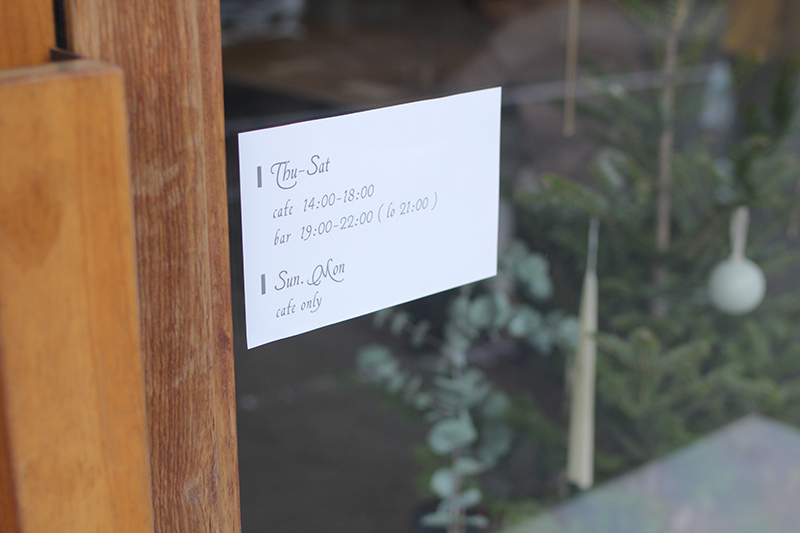 Thu-Sat
cafe 14:00-18:00
bar 19:00-22:00 ( lo 21:00 )
Sun. Mon
cafe only